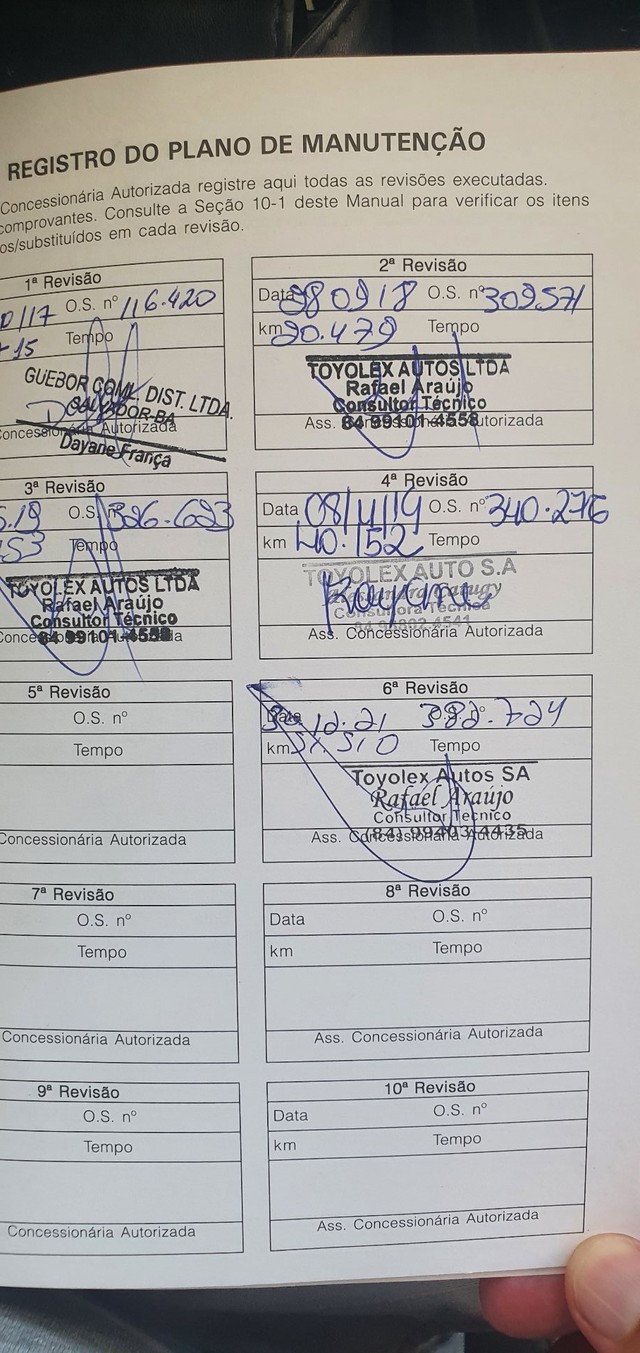 REGISTRO DO PLANO DE MANUTENÇÃO
Concessionária Autorizada registre aqui todas as revisões executadas.
comprovantes. Consulte a Seção 10-1 deste Manual para verificar os itens
os/substituídos em cada revisão.
1ª Revisão
/17 O.S. nº 116.420
15 Tempo
GUEBOR COML. DIST. LTDA.
SALVADOR-BA
Concessionária Autorizada
Dayane França
2ª Revisão
Data 280918 O.S. nº 309571
km 20.479 Tempo
TOYOLEX AUTOS LTDA
Rafael Araújo
Consultor Técnico
84 99101-4558
Ass. Concessionária Autorizada
3ª Revisão
.19 O.S. nº 326.623
53 Tempo
TOYOLEX AUTOS LTDA
Rafael Araújo
Consultor Técnico
84 99101-4558
4ª Revisão
Data 08/11/19 O.S. nº 340.276
km 40.152 Tempo
TOYOLEX AUTO S.A
Consultora Técnica
Ass. Concessionária Autorizada
5ª Revisão
O.S. nº
Tempo
Concessionária Autorizada
6ª Revisão
Data 12.21 382.724
km 51.510 Tempo
Toyolex Autos SA
Rafael Araújo
Consultor Técnico
(84) 99403-4435
Ass. Concessionária Autorizada
7ª Revisão
O.S. nº
Tempo
Concessionária Autorizada
8ª Revisão
Data O.S. nº
km Tempo
Ass. Concessionária Autorizada
9ª Revisão
O.S. nº
Tempo
Concessionária Autorizada
10ª Revisão
Data O.S. nº
km Tempo
Ass. Concessionária Autorizada